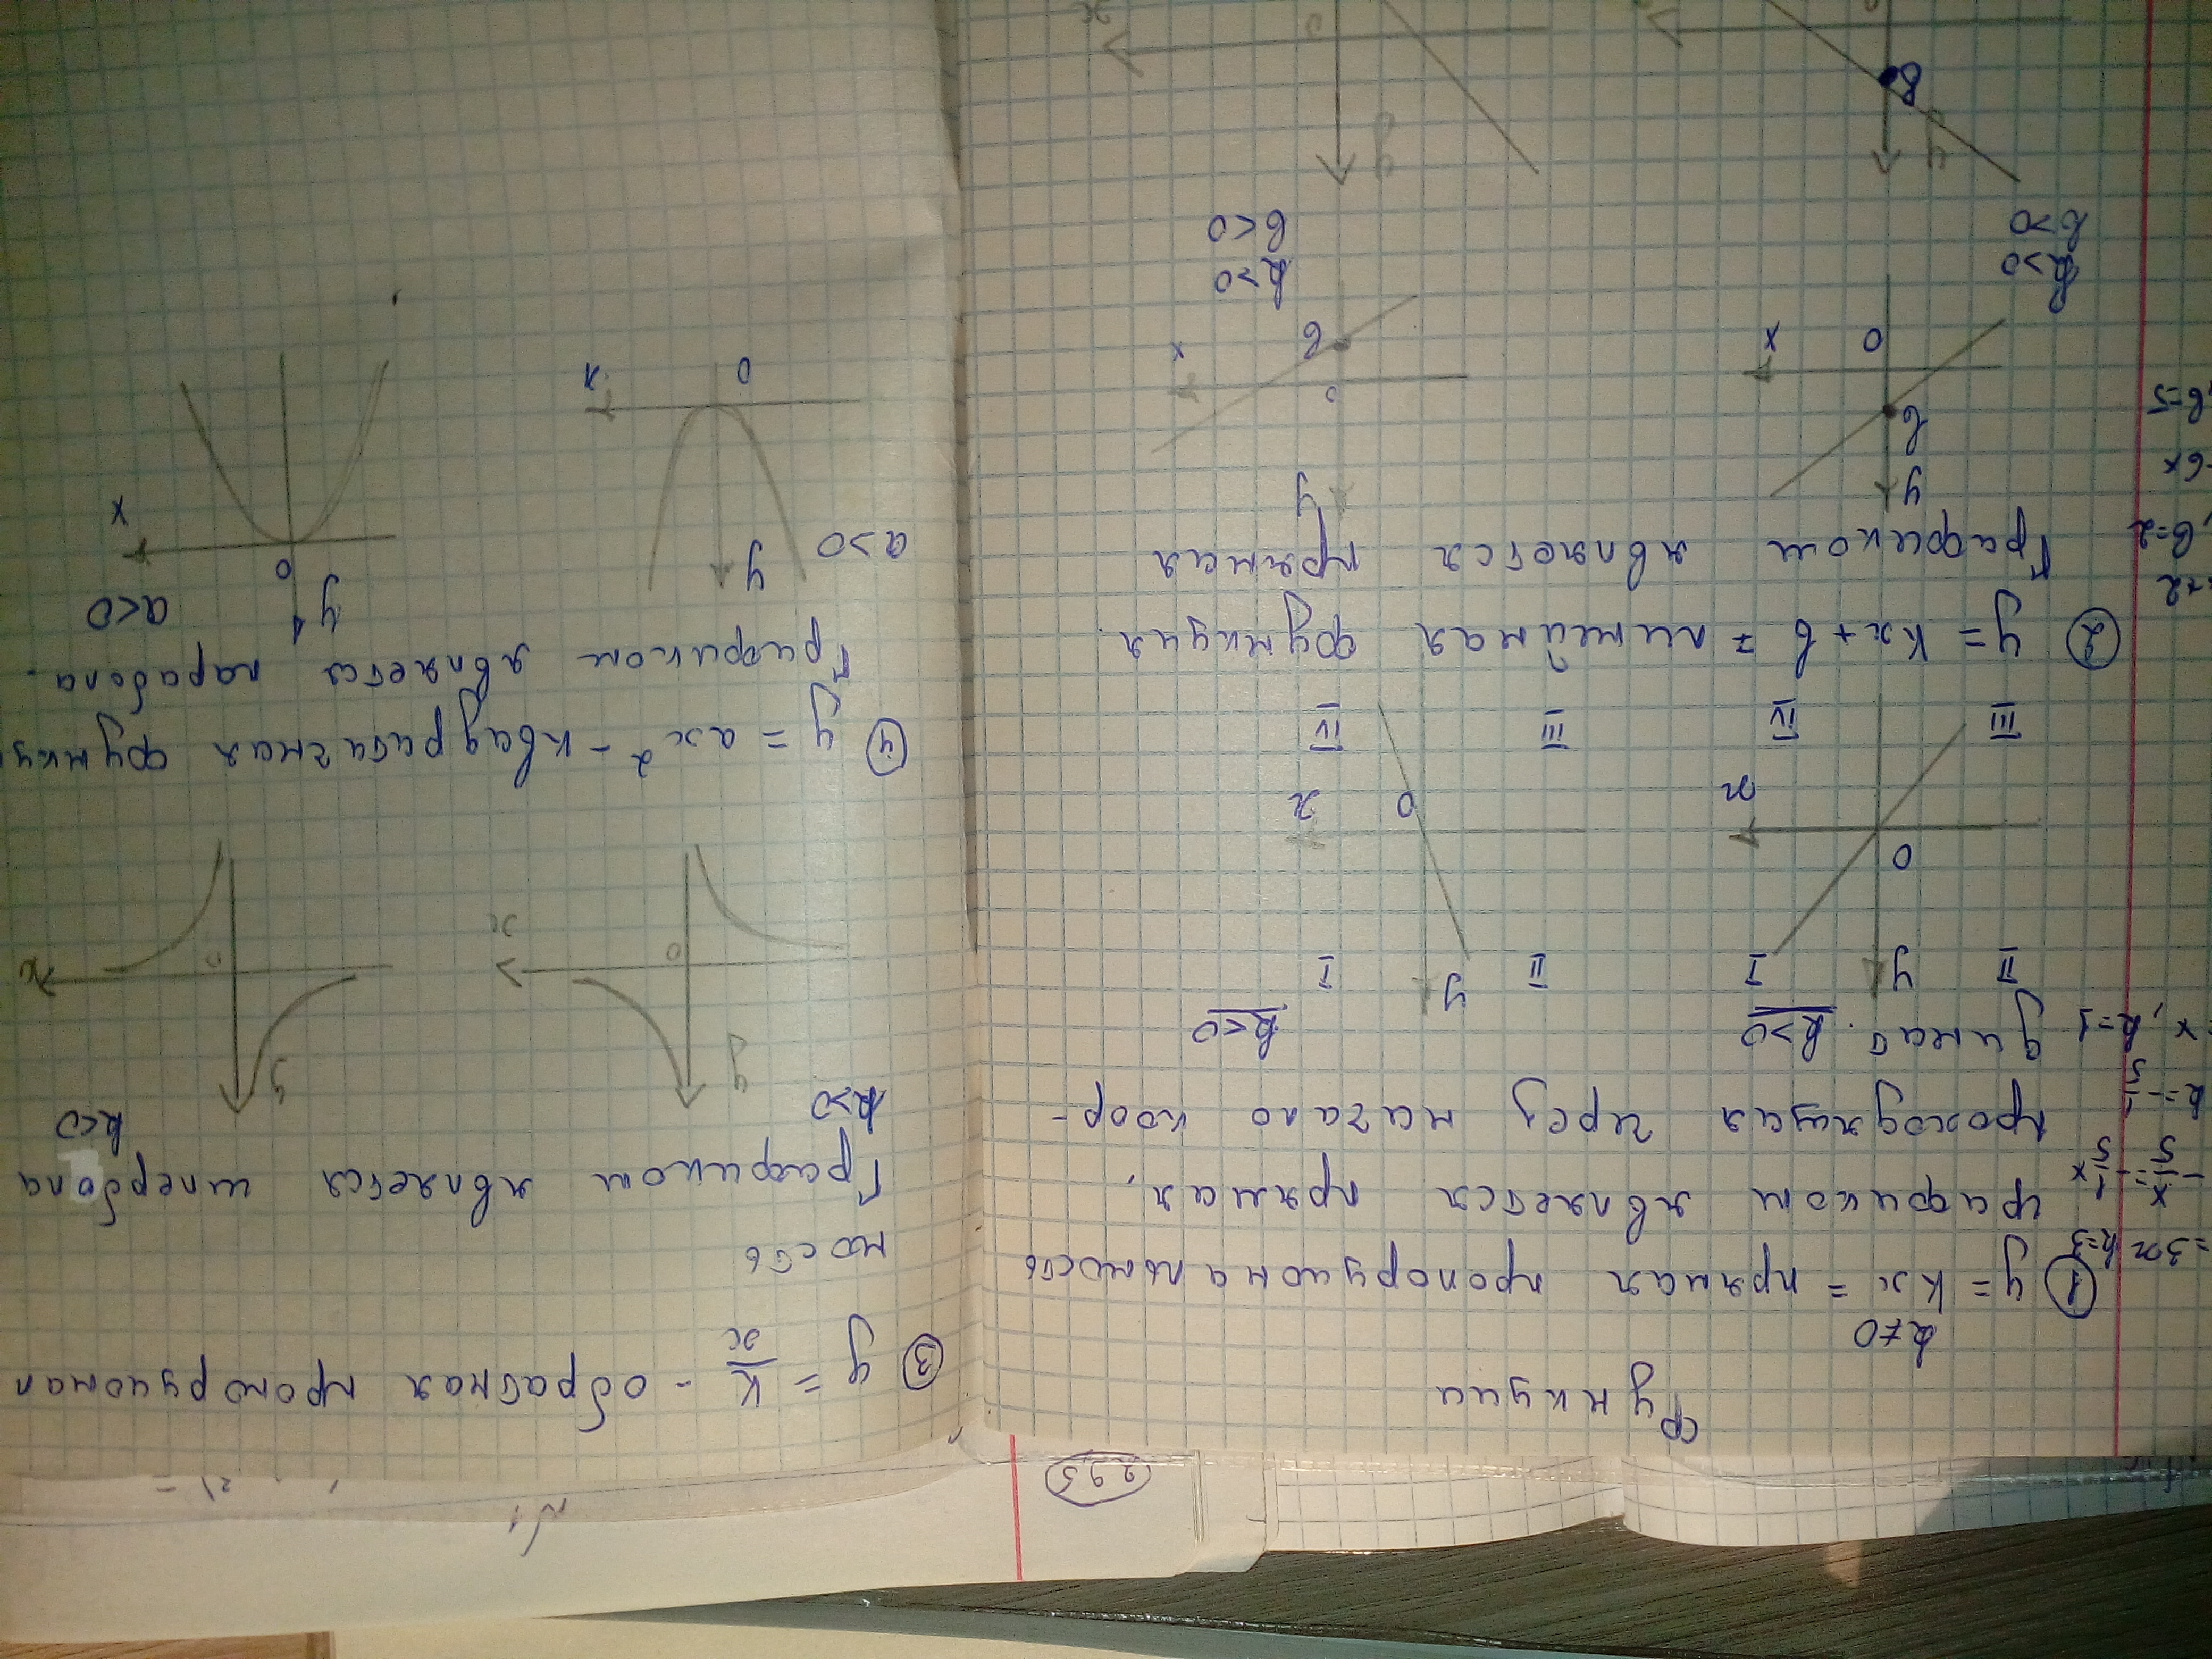 293
функции
k≠0
① y = kx = прямая пропорциональность
=3x k=3
графиком является прямая,
-x/5 = -1/5 x
проходящая через начало коор-
k=-1/5
динат. k>0
k<0
x, k=1
II y I
II y I
0
x
0 x
III IV
III IV
② y = kx + b = линейная функция.
+2
Графиком является прямая
, b=2
-6x
b=5
y
b
0 x
y
0
b x
k>0
b>0
k>0
b<0
y
b
y
x
③ y = k/x - обратная пропорционал
ность
Графиком является гипербола
k>0
k<0
y
0 x
y
0 x
④ y = ax² - квадратичная функц
Графиком является парабола.
a>0
a<0
y
0 x
y
0 x